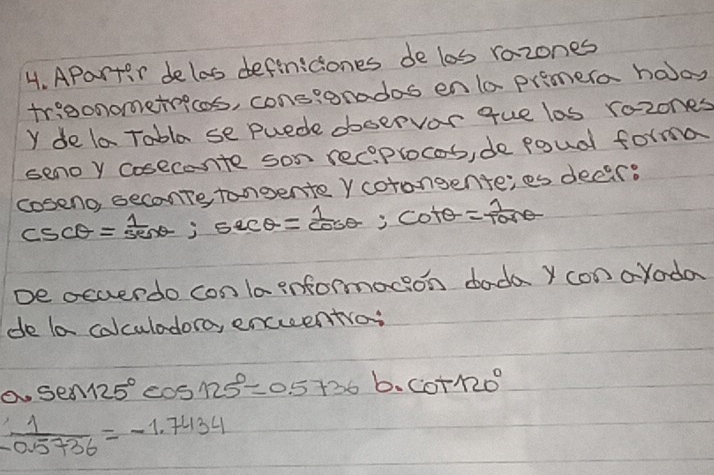 4. APartir de las definiciones de las razones
trigonometricas, consignadas en la primera hoja,
y de la Tabla se puede observar que las razones
seno y cosecante son reciprocas, de igual forma
coseno, secante, tangente y cotangente; es decir:
cscθ = 1/senθ ; secθ = 1/cosθ ; cotθ = 1/tanθ
De acuerdo con la informacion dada y con ayada
de la calculadora, encuentra:
a. sen125° cos125° = 0.5736 b. cot120°
1/-0.5736 = -1.7434